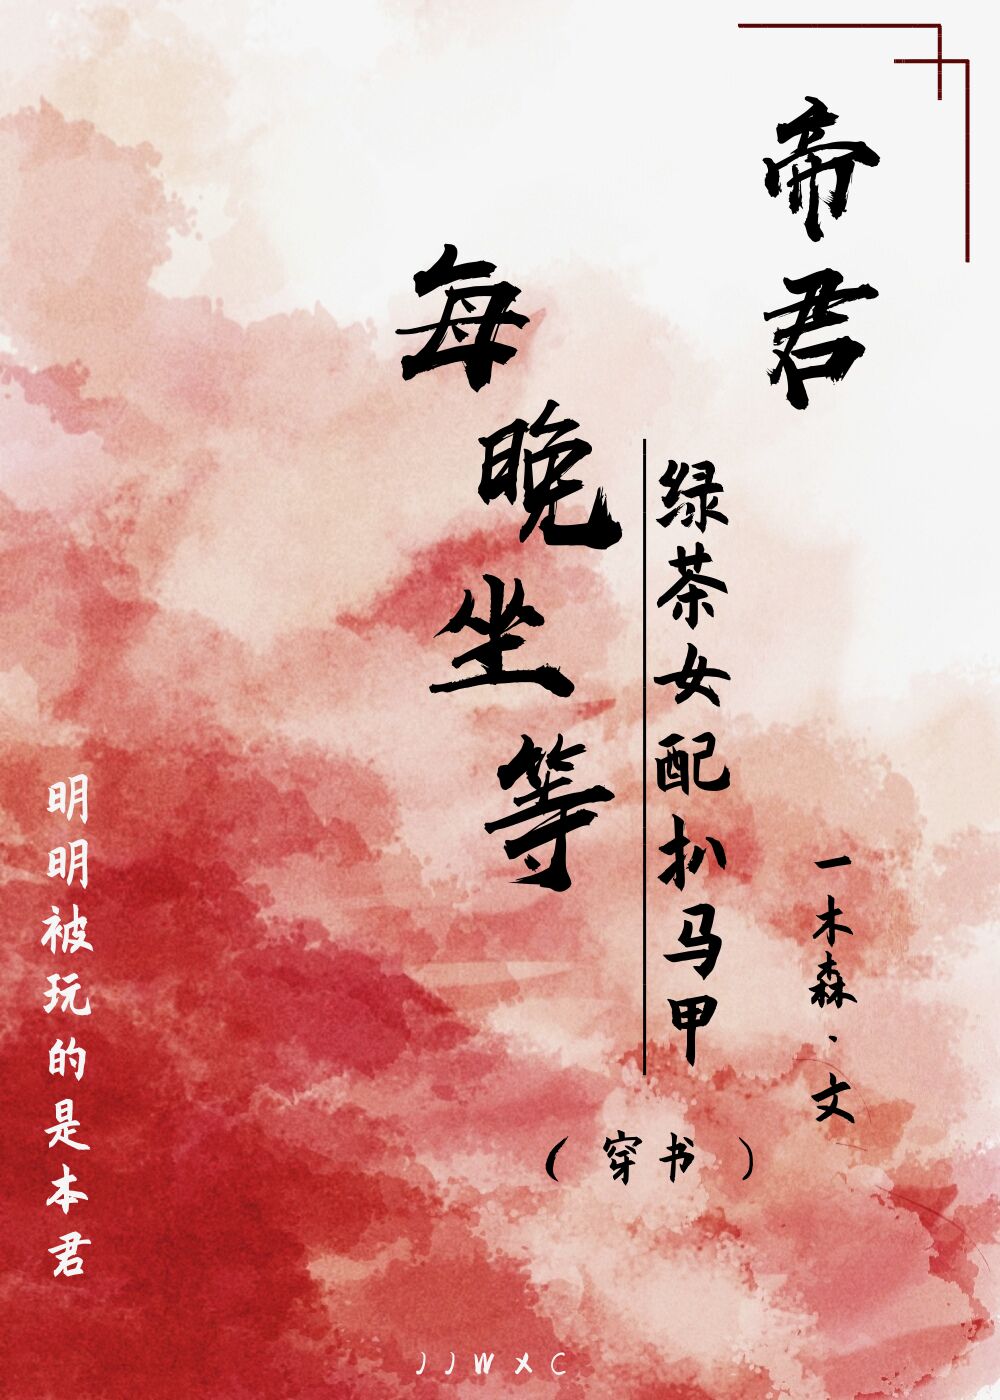 帝君
每晚坐等
绿茶女配扒马甲
(穿书)
一木森·文
明明被玩的是本君
JJWXC